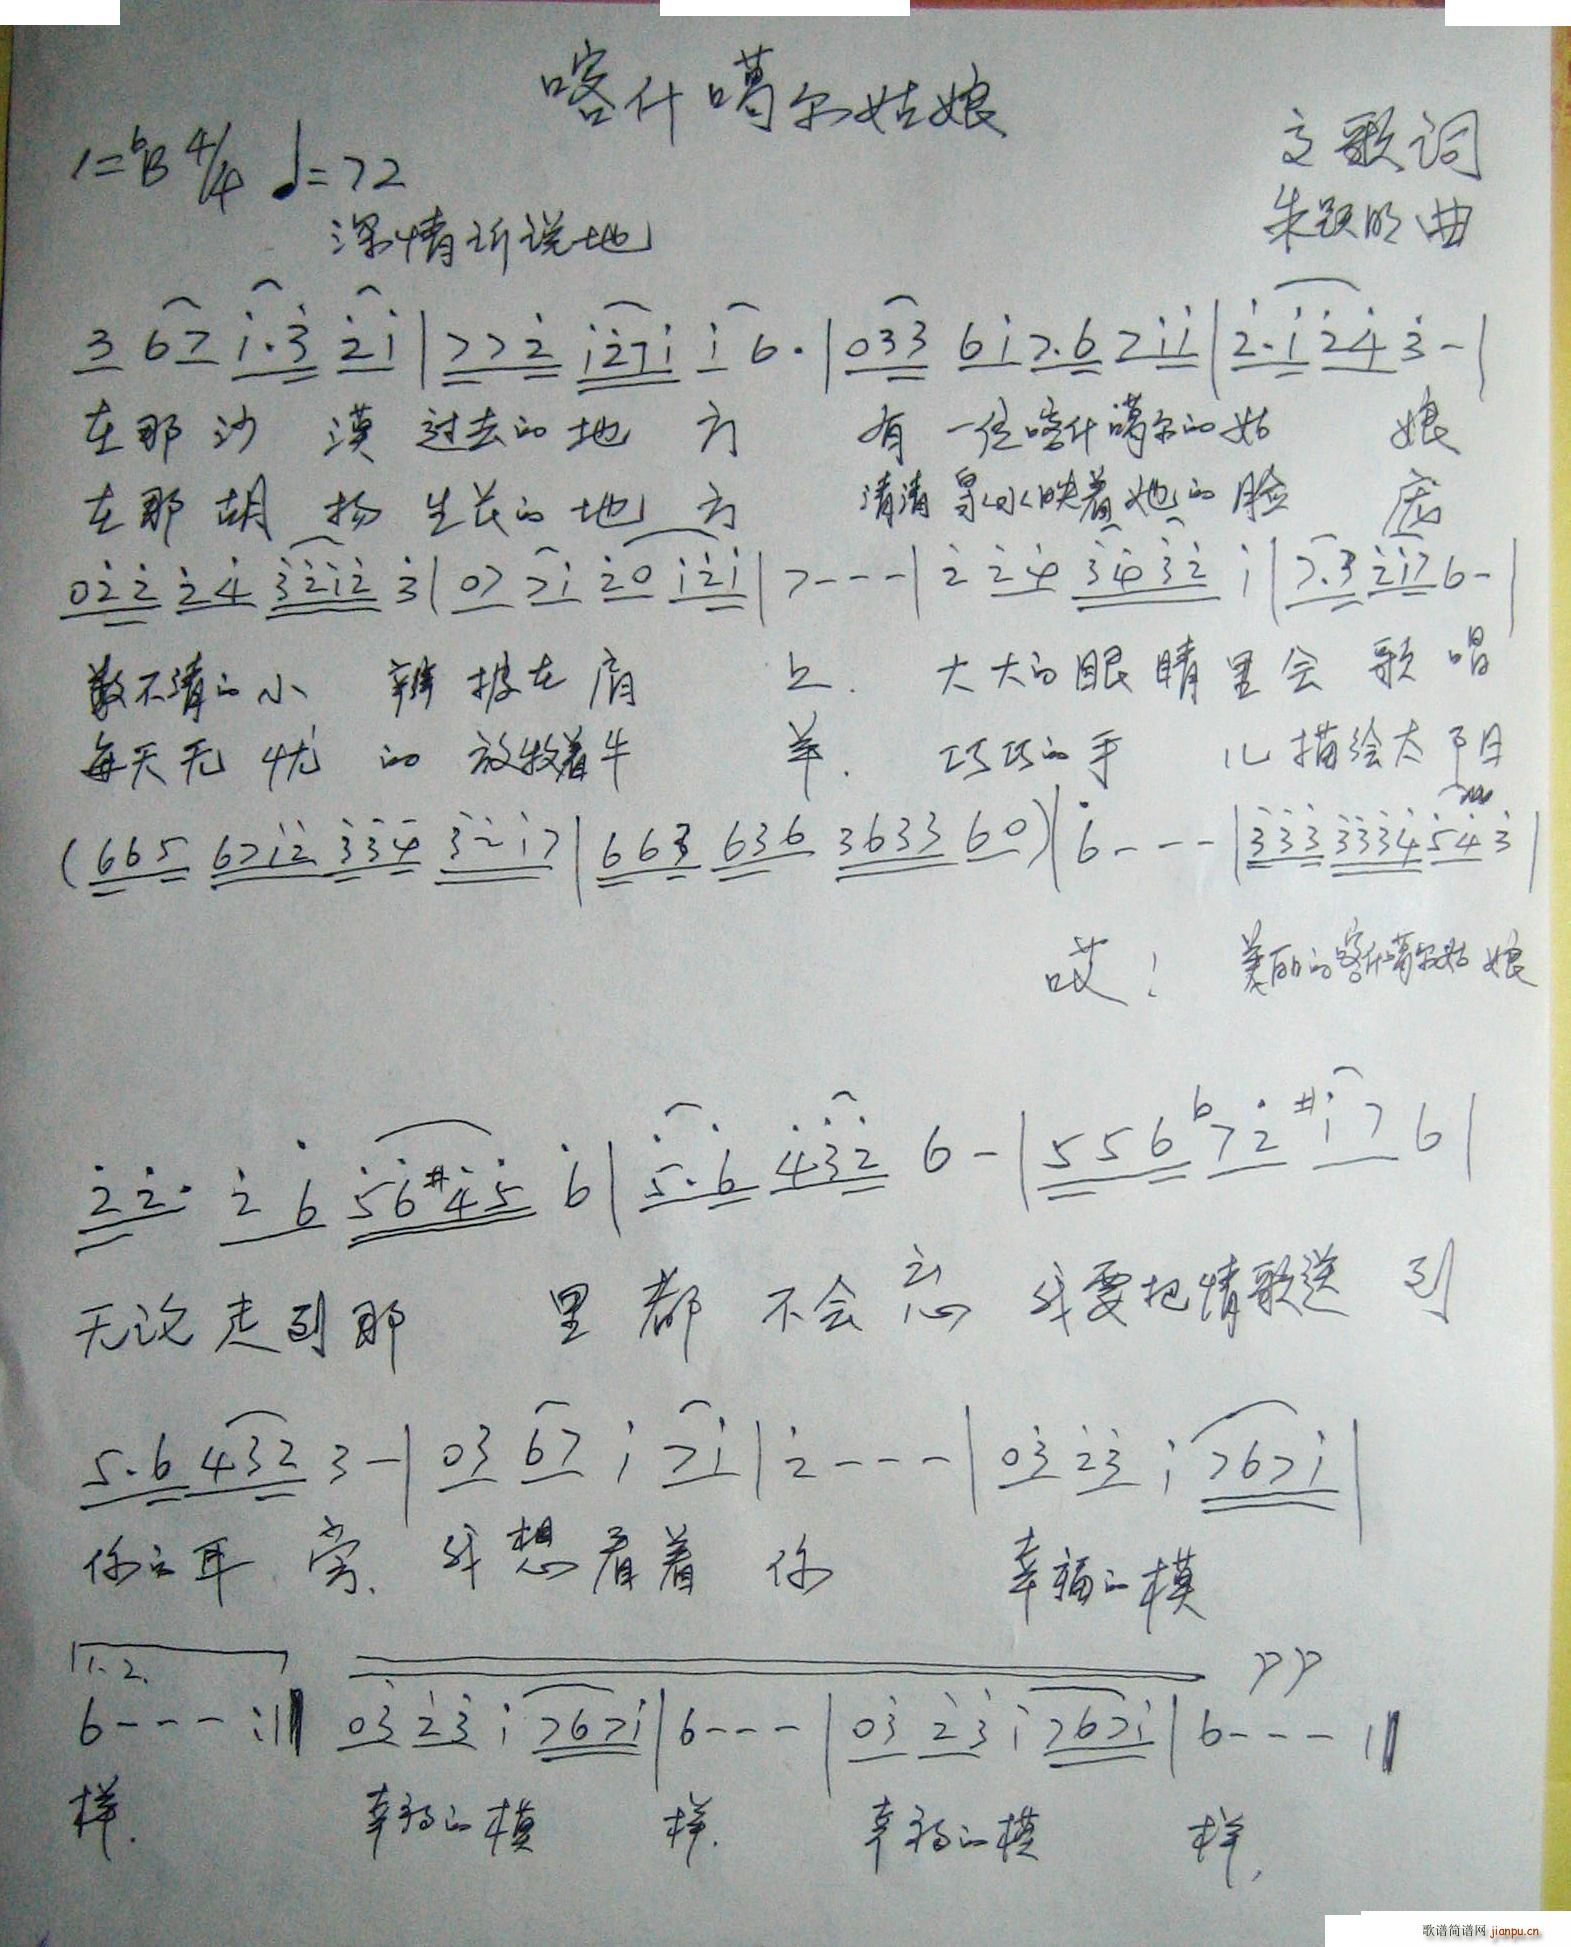 喀什噶尔姑娘
1=♭B 4/4 ♩=72
文歌词
深情诉说地
朱跃明曲
3 67 i·3 2i | 772 i27i i 6· | 033 6i 7·6 7ii | 2·i 24 3 - |
在那沙漠过去的地方 有一位喀什噶尔的姑娘
在那胡杨生长的地方 清清泉水映着她的脸庞
022 24 3212 3 | 07 7i 20 i2i | 7 - - - | 2 24 3432 i | 7·3 2i7 6 - |
数不清的小辫披在肩上. 大大的眼睛里会歌唱
每天无忧的放牧着牛羊. 巧巧的手儿描绘太阳
(665 67i2 334 32i7 | 663 636 3633 60) | 6 - - - | 333 3334 54 3 |
哎! 美丽的喀什噶尔姑娘
22· 2 6 56#45 6 | 5·6 432 6 - | 556 ♭72 #i7 6 |
无论走到那里都不会忘 我要把情歌送到
5·6 432 3 - | 03 67 i 7i | 2 - - - | 03 23 i 767i |
你的耳旁. 我想看着你 幸福的模
1.2.
6 - - - :|| 03 23 i 767i | 6 - - - | 03 23 i 767i | 6 - - - ||
样. 幸福的模样. 幸福的模样.
歌谱简谱网 jianpu.cn